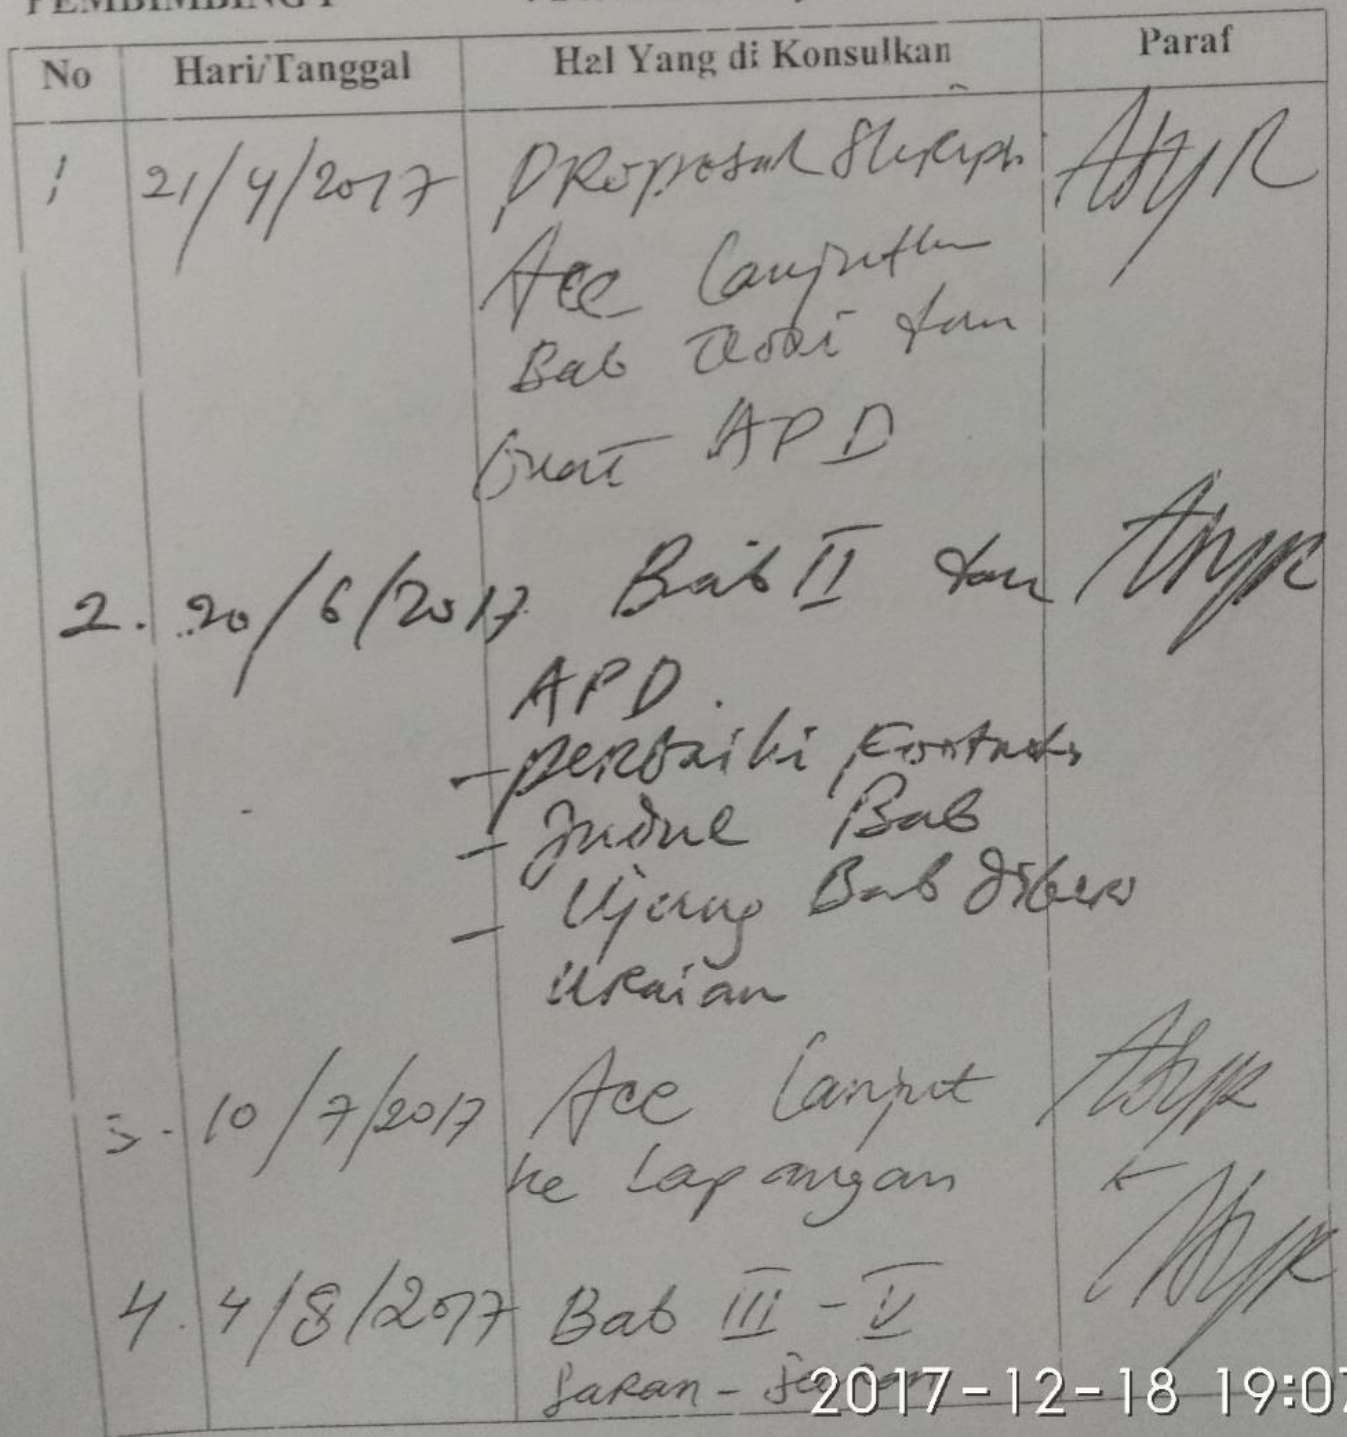 PEMBIMBING I
No Hari/Tanggal Hal Yang di Konsulkan Paraf
1 21/4/2017 Proposal Skripsi
Acc Lanjutkan
Bab Teori dan
buat APD
2. 20/6/2017 Bab II dan
APD.
- perbaiki Footnote
- Judul Bab
- Ujung Bab diberi
uraian
3. 10/7/2017 Acc Lanjut
ke Lapangan
4. 4/8/2017 Bab III - V
Saran -
2017-12-18 19:07